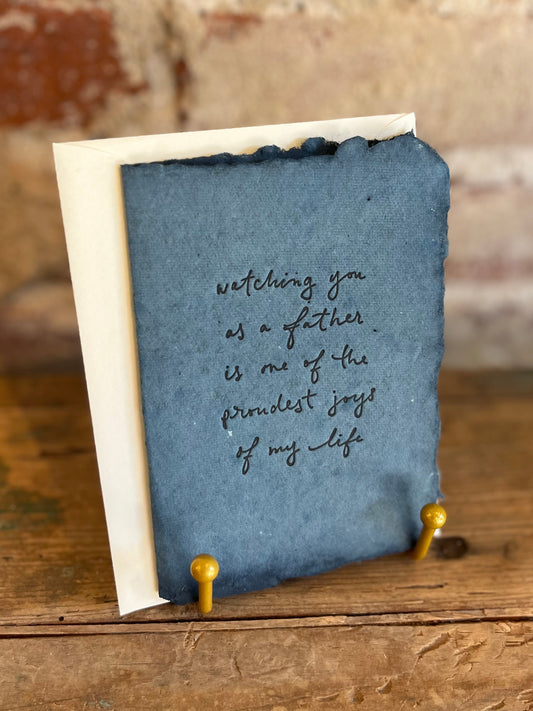 watching you
as a father
is one of the
proudest joys
of my life